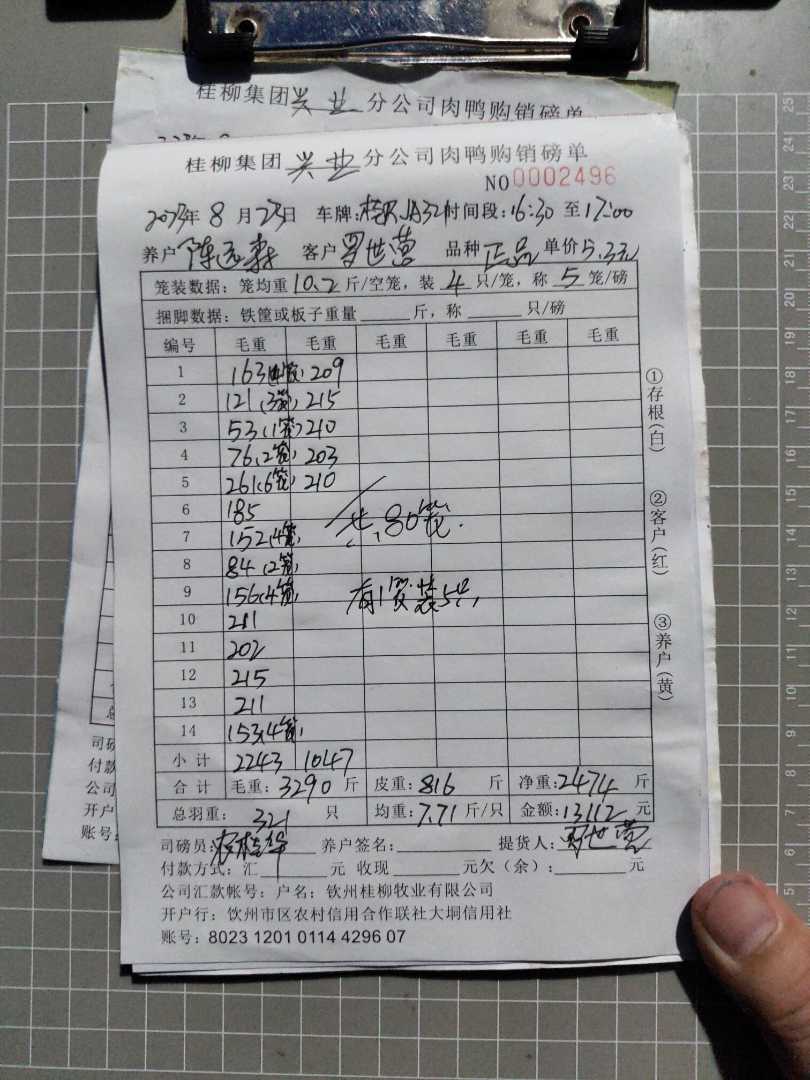 桂柳集团兴业分公司肉鸭购销磅单
桂柳集团兴业分公司肉鸭购销磅单
NO 0002496
2023年8月23日 车牌: 时间段:16:30至17:00
养户 陈 客户 罗世营 品种 正品 单价5.3元
笼装数据:笼均重10.2斤/空笼,装4只/笼,称5笼/磅
捆脚数据:铁筐或板子重量______斤,称______只/磅
编号 毛重 毛重 毛重 毛重 毛重 毛重
1 163(4笼) 209
2 121(3笼) 215
3 53(1笼) 210
4 76(2笼) 203
5 261(6笼) 210
6 185
7 152(4笼) 共80笼.
8 84(2笼)
9 156(4笼) 有1笼装5只
10 211
11 202
12 215
13 211
14 153(4笼)
小计 2243 1047
合计 毛重:3290斤 皮重:816斤 净重:2474斤
总羽重: 321 只 均重:7.71斤/只 金额:13112元
司磅员: 养户签名: 提货人:罗世营
付款方式:汇______元 收现______元欠(余):______元
公司汇款帐号:户名:钦州桂柳牧业有限公司
开户行:钦州市区农村信用合作联社大垌信用社
账号:8023 1201 0114 4296 07
①存根(白)
②客户(红)
③养户(黄)
司磅
付款
公司
开户
账号:
25
22
21
20
19
18
17
16
15
14
13
12
11
10
9
8
7
6
5